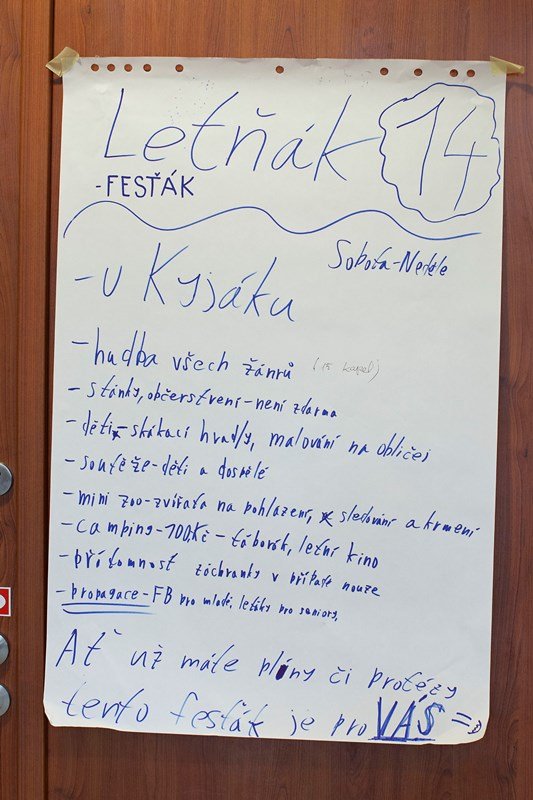 Letňák 14
-FESŤÁK
Sobota-Neděle
-U Kyjáku
-hudba všech žánrů (15 kapel)
-stánky, občerstvení-není zdarma
-děti-skákací hrady, malování na obličej
-soutěže-děti a dospělé
-mini zoo-zvířata na pohlazení, sledování a krmení
-camping-100Kč-táborák, letní kino
-přítomnost záchranky v případě nouze
-propagace-FB pro mladé, letáky pro seniory,
Ať už máte plíny či protézy
tento fesťák je pro VÁS =D